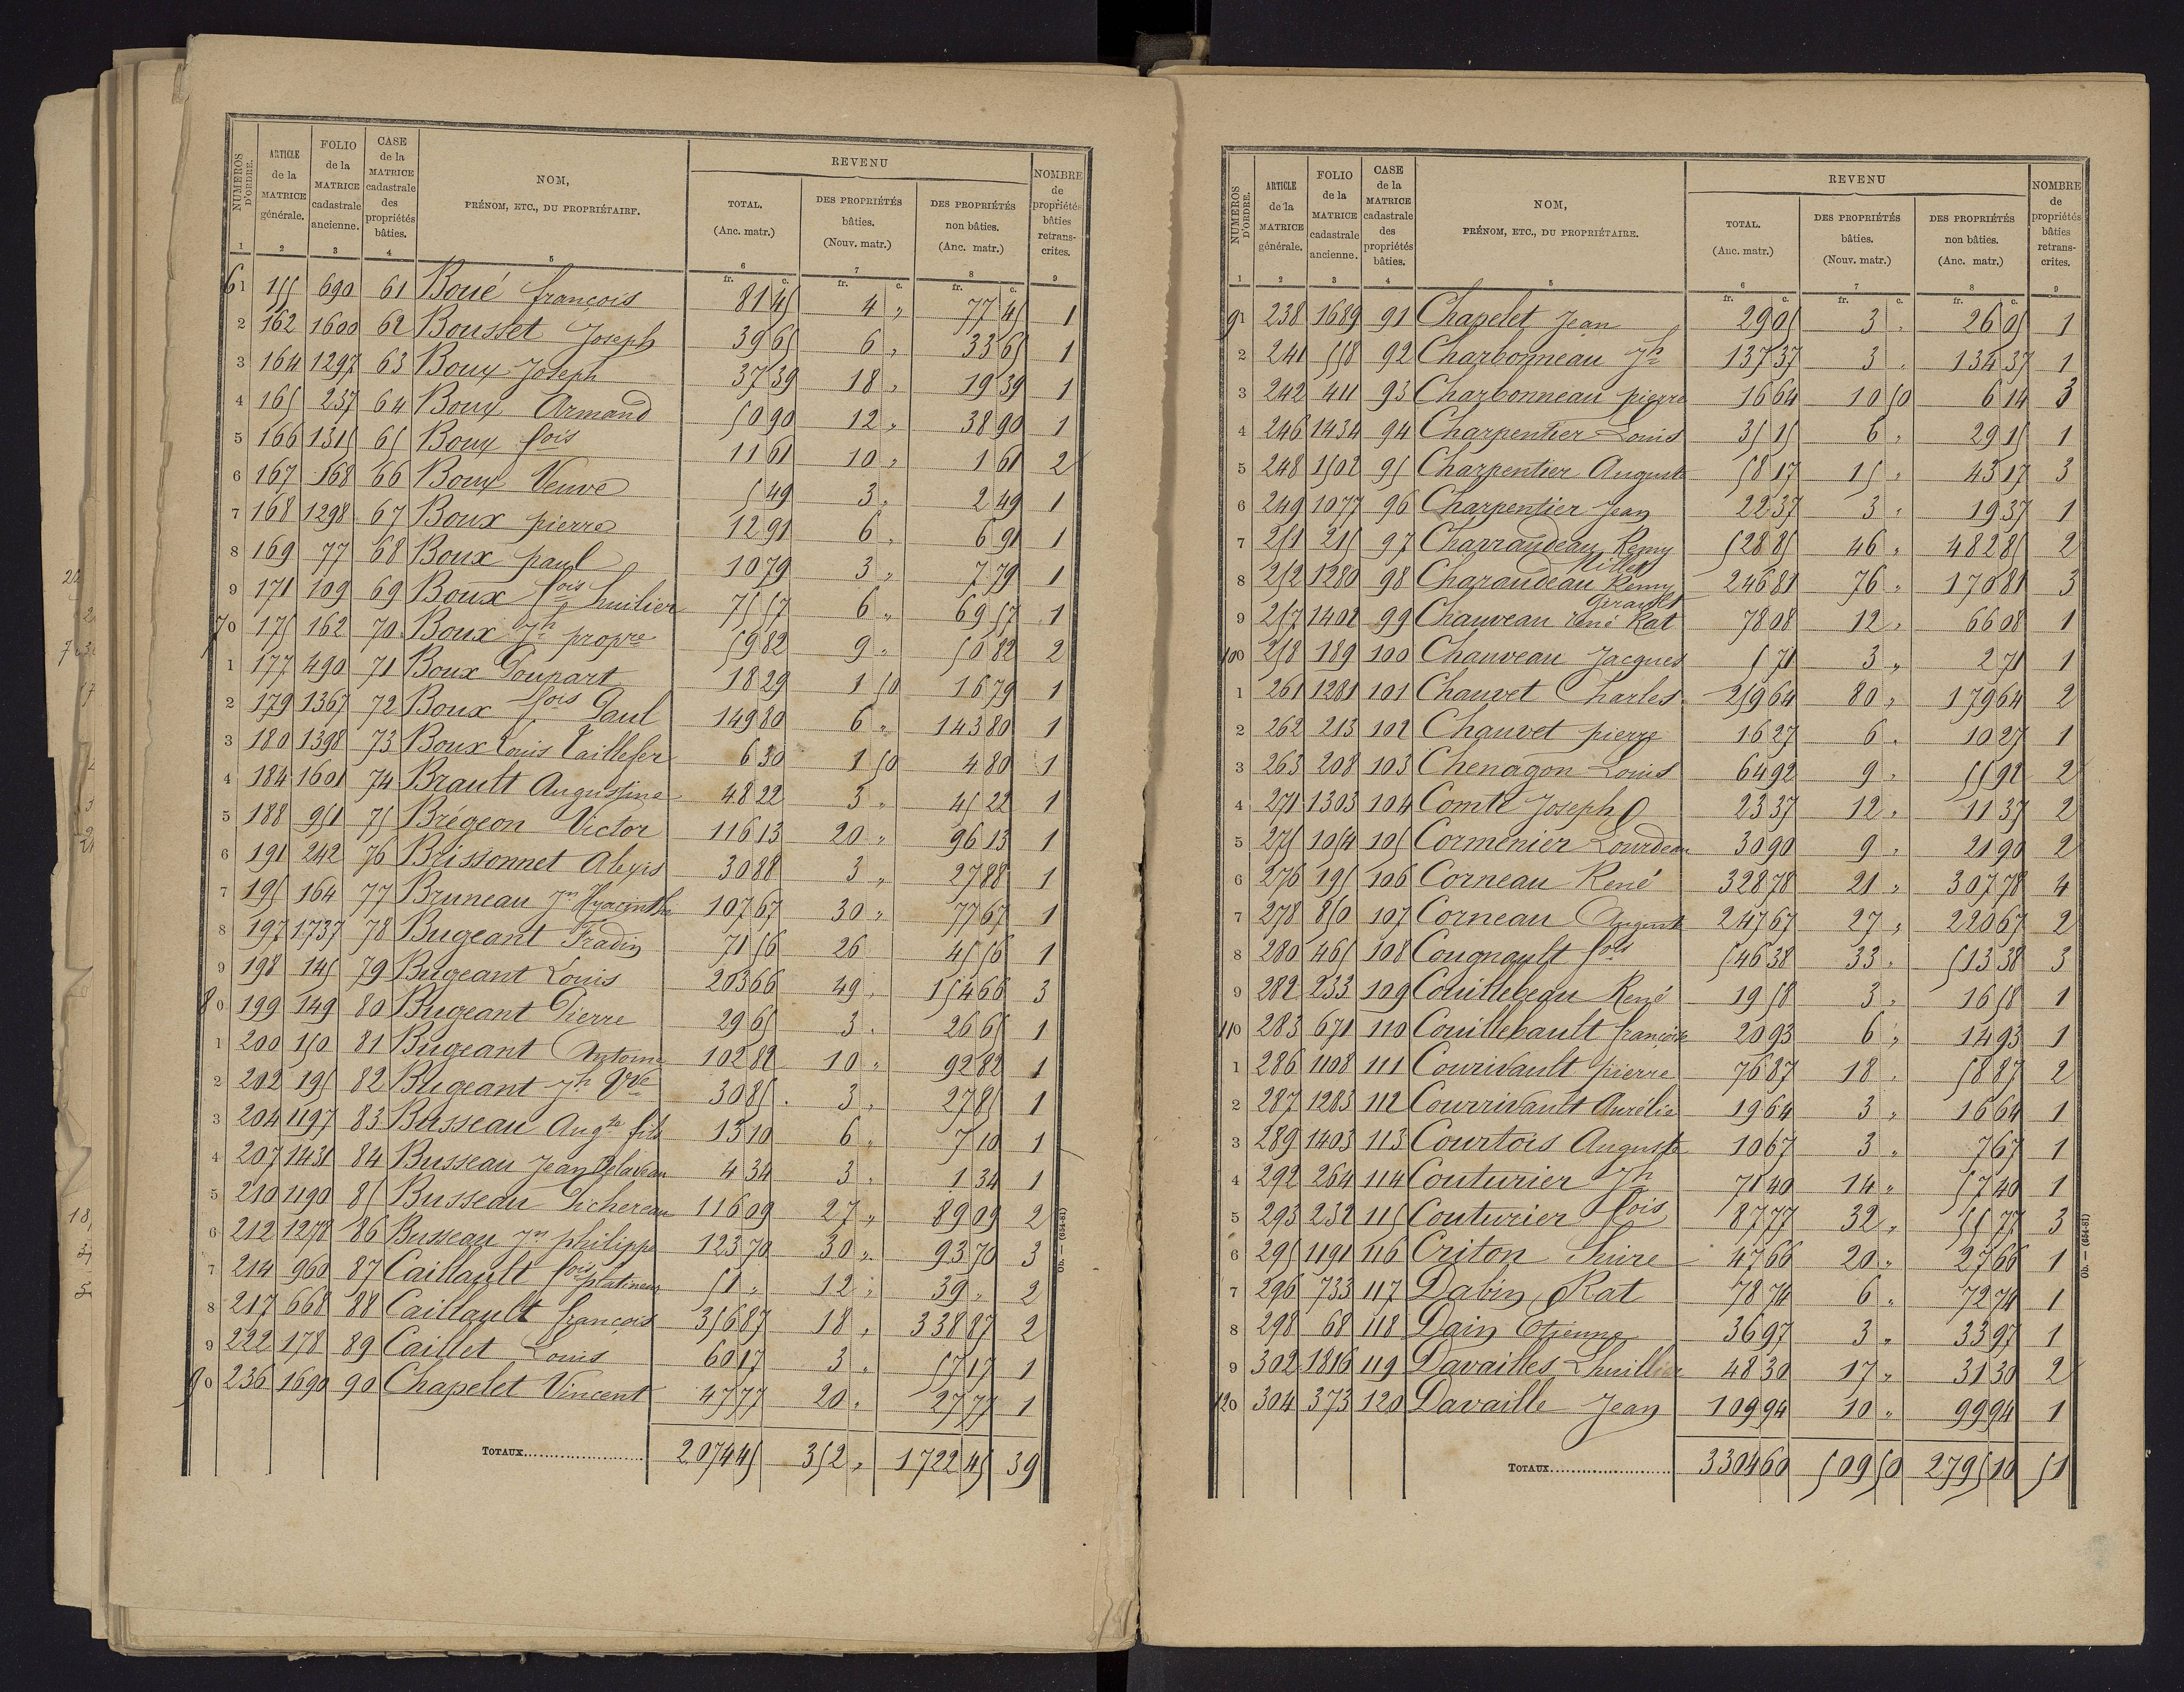 NUMÉROS D'ORDRE. | ARTICLE de la MATRICE générale. | FOLIO de la MATRICE cadastrale ancienne. | CASE de la MATRICE cadastrale des propriétés bâties. | NOM, PRÉNOM, ETC., DU PROPRIÉTAIRE. | REVENU | NOMBRE de propriétés bâties retrans-crites.
TOTAL. (Anc. matr.) | DES PROPRIÉTÉS bâties. (Nouv. matr.) | DES PROPRIÉTÉS non bâties. (Anc. matr.)
1 2 3 4 5 6 7 8 9
fr. c. fr. c. fr. c.
61 155 690 61 Boué françois 81 45 4 " 77 45 1
2 162 1600 62 Bousset Joseph 39 65 6 " 33 65 1
3 164 1297 63 Boux Joseph 37 39 18 " 19 39 1
4 165 237 64 Boux Armand 50 90 12 " 38 90 1
5 166 1315 65 Boux fois 11 61 10 " 1 61 2
6 167 168 66 Boux Veuve 5 49 3 " 2 49 1
7 168 1298 67 Boux pierre 12 91 6 " 6 91 1
8 169 77 68 Boux paul 10 79 3 " 7 79 1
9 171 109 69 Boux fois huilier 75 57 6 " 69 57 1
70 175 162 70 Boux Jh propre 59 82 9 " 50 82 2
1 177 490 71 Boux Poupart 18 29 1 50 16 79 1
2 179 1367 72 Boux fois Paul 149 80 6 " 143 80 1
3 180 1398 73 Boux Louis Taillefer 6 30 1 50 4 80 1
4 184 1601 74 Brault Augustine 48 22 3 " 45 22 1
5 188 951 75 Brégeon Victor 116 13 20 " 96 13 1
6 191 242 76 Brissonnet Alexis 30 88 3 " 27 88 1
7 195 164 77 Bruneau Jn Hyacinthe 107 67 30 " 77 67 1
8 197 1737 78 Bugeant Fradin 71 56 26 45 56 1
9 198 145 79 Bugeant Louis 203 66 49 " 154 66 3
80 199 149 80 Bugeant Pierre 29 65 3 " 26 65 1
1 200 150 81 Bugeant Antoine 102 82 10 " 92 82 1
2 202 195 82 Bugeant Jh Vve 30 85 3 " 27 85 1
3 204 1197 83 Busseau Augte fils 13 10 6 " 7 10 1
4 207 1431 84 Busseau Jean Delaveau 4 34 3 " 1 34 1
5 210 1190 85 Busseau Pichereau 116 09 27 " 89 09 2
6 212 1278 86 Busseau Jn philippe 123 70 30 " 93 70 3
7 214 960 87 Caillault fois platineur 51 " 12 " 39 " 2
8 217 668 88 Caillault françois 356 87 18 " 338 87 2
9 222 178 89 Caillet Louis 60 17 3 " 57 17 1
90 236 1690 90 Chapelet Vincent 47 77 20 " 27 77 1
TOTAUX 2074 45 352 " 1722 45 39
Ob. — (654-81)
NUMÉROS D'ORDRE. | ARTICLE de la MATRICE générale. | FOLIO de la MATRICE cadastrale ancienne. | CASE de la MATRICE cadastrale des propriétés bâties. | NOM, PRÉNOM, ETC., DU PROPRIÉTAIRE. | REVENU | NOMBRE de propriétés bâties retrans-crites.
TOTAL. (Anc. matr.) | DES PROPRIÉTÉS bâties. (Nouv. matr.) | DES PROPRIÉTÉS non bâties. (Anc. matr.)
1 2 3 4 5 6 7 8 9
fr. c. fr. c. fr. c.
91 238 1689 91 Chapelet Jean 29 05 3 " 26 05 1
2 241 558 92 Charbonneau Jh 137 37 3 " 134 37 1
3 242 411 93 Charbonneau pierre 16 64 10 50 6 14 3
4 246 1434 94 Charpentier Louis 35 15 6 " 29 15 1
5 248 1502 95 Charpentier Auguste 58 17 15 " 43 17 3
6 249 1077 96 Charpentier Jean 22 37 3 " 19 37 1
7 251 215 97 Charraudeau Remy 528 85 46 " 482 85 2
8 252 1280 98 Charaudeau Remy Millet 246 81 76 " 170 81 3
9 257 1402 99 Chauveau René Rat Girault 78 08 12 " 66 08 1
100 258 189 100 Chauveau Jacques 5 71 3 " 2 71 1
1 261 1281 101 Chauvet Charles 259 64 80 " 179 64 2
2 262 213 102 Chauvet pierre 16 27 6 " 10 27 1
3 263 208 103 Chenagon Louis 64 92 9 " 55 92 2
4 271 1303 104 Comte Joseph 23 37 12 " 11 37 2
5 275 1054 105 Cormenier Lourdeau 30 90 9 " 21 90 2
6 276 195 106 Corneau René 328 78 21 " 307 78 4
7 278 850 107 Corneau August 247 67 27 " 220 67 2
8 280 465 108 Cougnault fois 546 38 33 " 513 38 3
9 282 233 109 Couillebeau René 19 58 3 " 16 58 1
110 283 671 110 Couillebault françoise 20 93 6 " 14 93 1
1 286 1108 111 Courivault pierre 76 87 18 " 58 87 2
2 287 1283 112 Courrivault Aurélie 19 64 3 " 16 64 1
3 289 1403 113 Courtois Auguste 10 67 3 " 7 67 1
4 292 264 114 Couturier Jh 71 40 14 " 57 40 1
5 293 232 115 Couturier fois 87 77 32 " 55 77 3
6 295 1191 116 Criton Suire 47 66 20 " 27 66 1
7 296 733 117 Dabin Rat 78 74 6 " 72 74 1
8 298 68 118 Dain Etienne 36 97 3 " 33 97 1
9 302 1816 119 Davailles Lhuillier 48 30 17 " 31 30 2
120 304 373 120 Davaille Jean 109 94 10 " 99 94 1
TOTAUX 3304 60 509 50 2795 10 51
Ob. — (654-81)